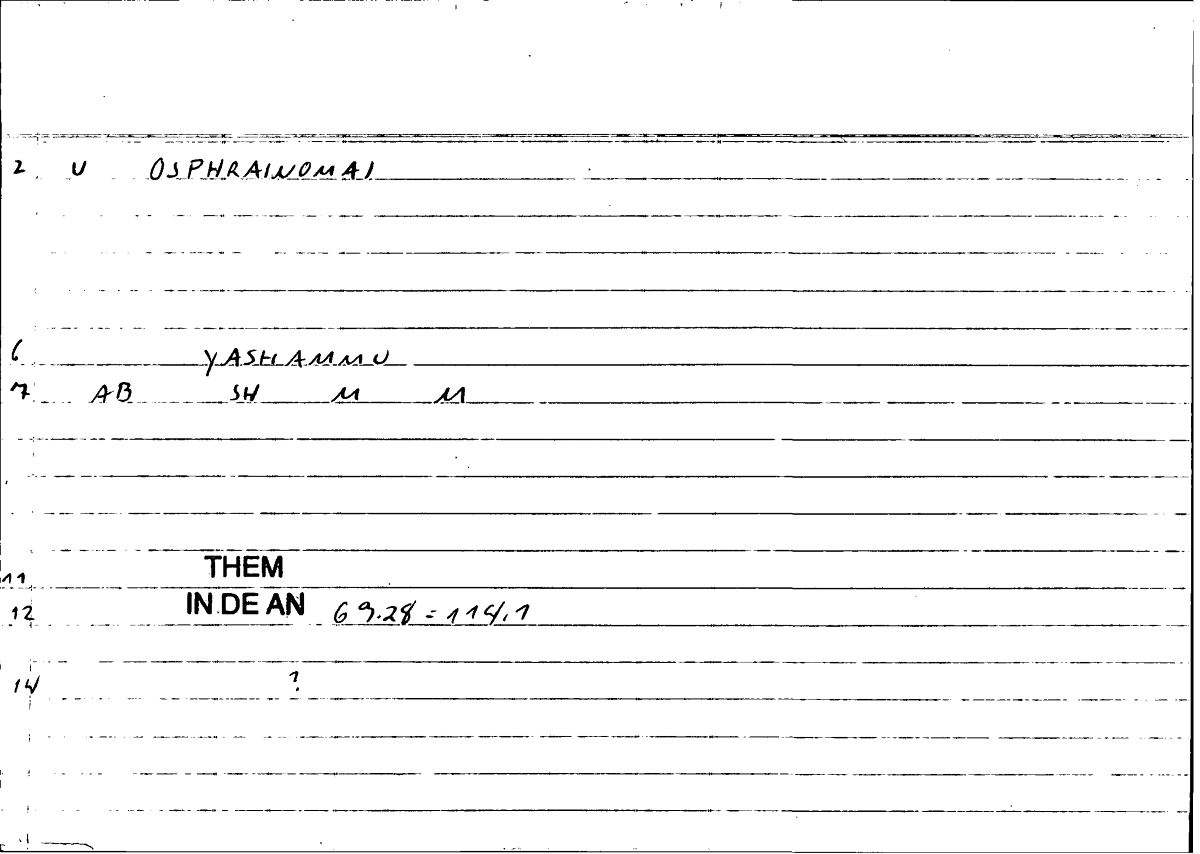 2 U OSPHRAINOMAI
6 YASHAMMU
7 AB SH M M
11 THEM
12 IN DE AN 69.28 = 114.1
14 ?